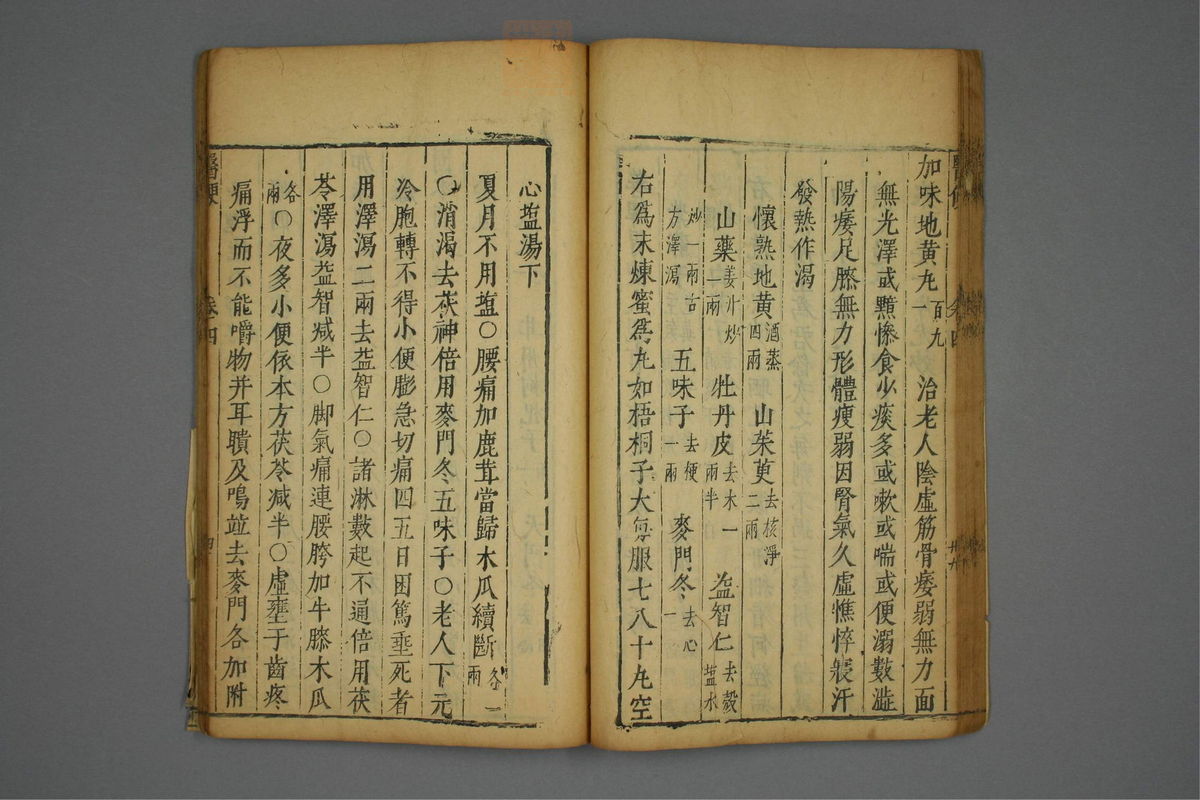 加味地黄丸一百九 治老人陰虛筋骨痿弱無力面
無光澤或黯慘食少痰多或嗽或喘或便溺數澁
陽痿足膝無力形體瘦弱因腎氣久虛憔悴寢汗
發熱作渴
懷熟地黄酒蒸四兩 山茱萸去核淨二兩
山藥姜汁炒一兩 牡丹皮去木一兩半 益智仁去殼塩水
炒一兩古方澤瀉 五味子去梗一兩 麥門冬去心一
右爲末煉蜜爲丸如梧桐子大每服七八十丸空
心塩湯下
夏月不用塩○腰痛加鹿茸當歸木瓜續斷各一兩
○消渴去茯神倍用麥門冬五味子○老人下元
冷胞轉不得小便膨急切痛四五日困篤垂死者
用澤瀉二兩去益智仁○諸淋數起不通倍用茯
苓澤瀉益智减半○脚氣痛連腰胯加牛膝木瓜
各兩○夜多小便依本方茯苓减半○虛壅于齒疼
痛浮而不能嚼物并耳聵及鳴竝去麥門各加附
醫便
卷四